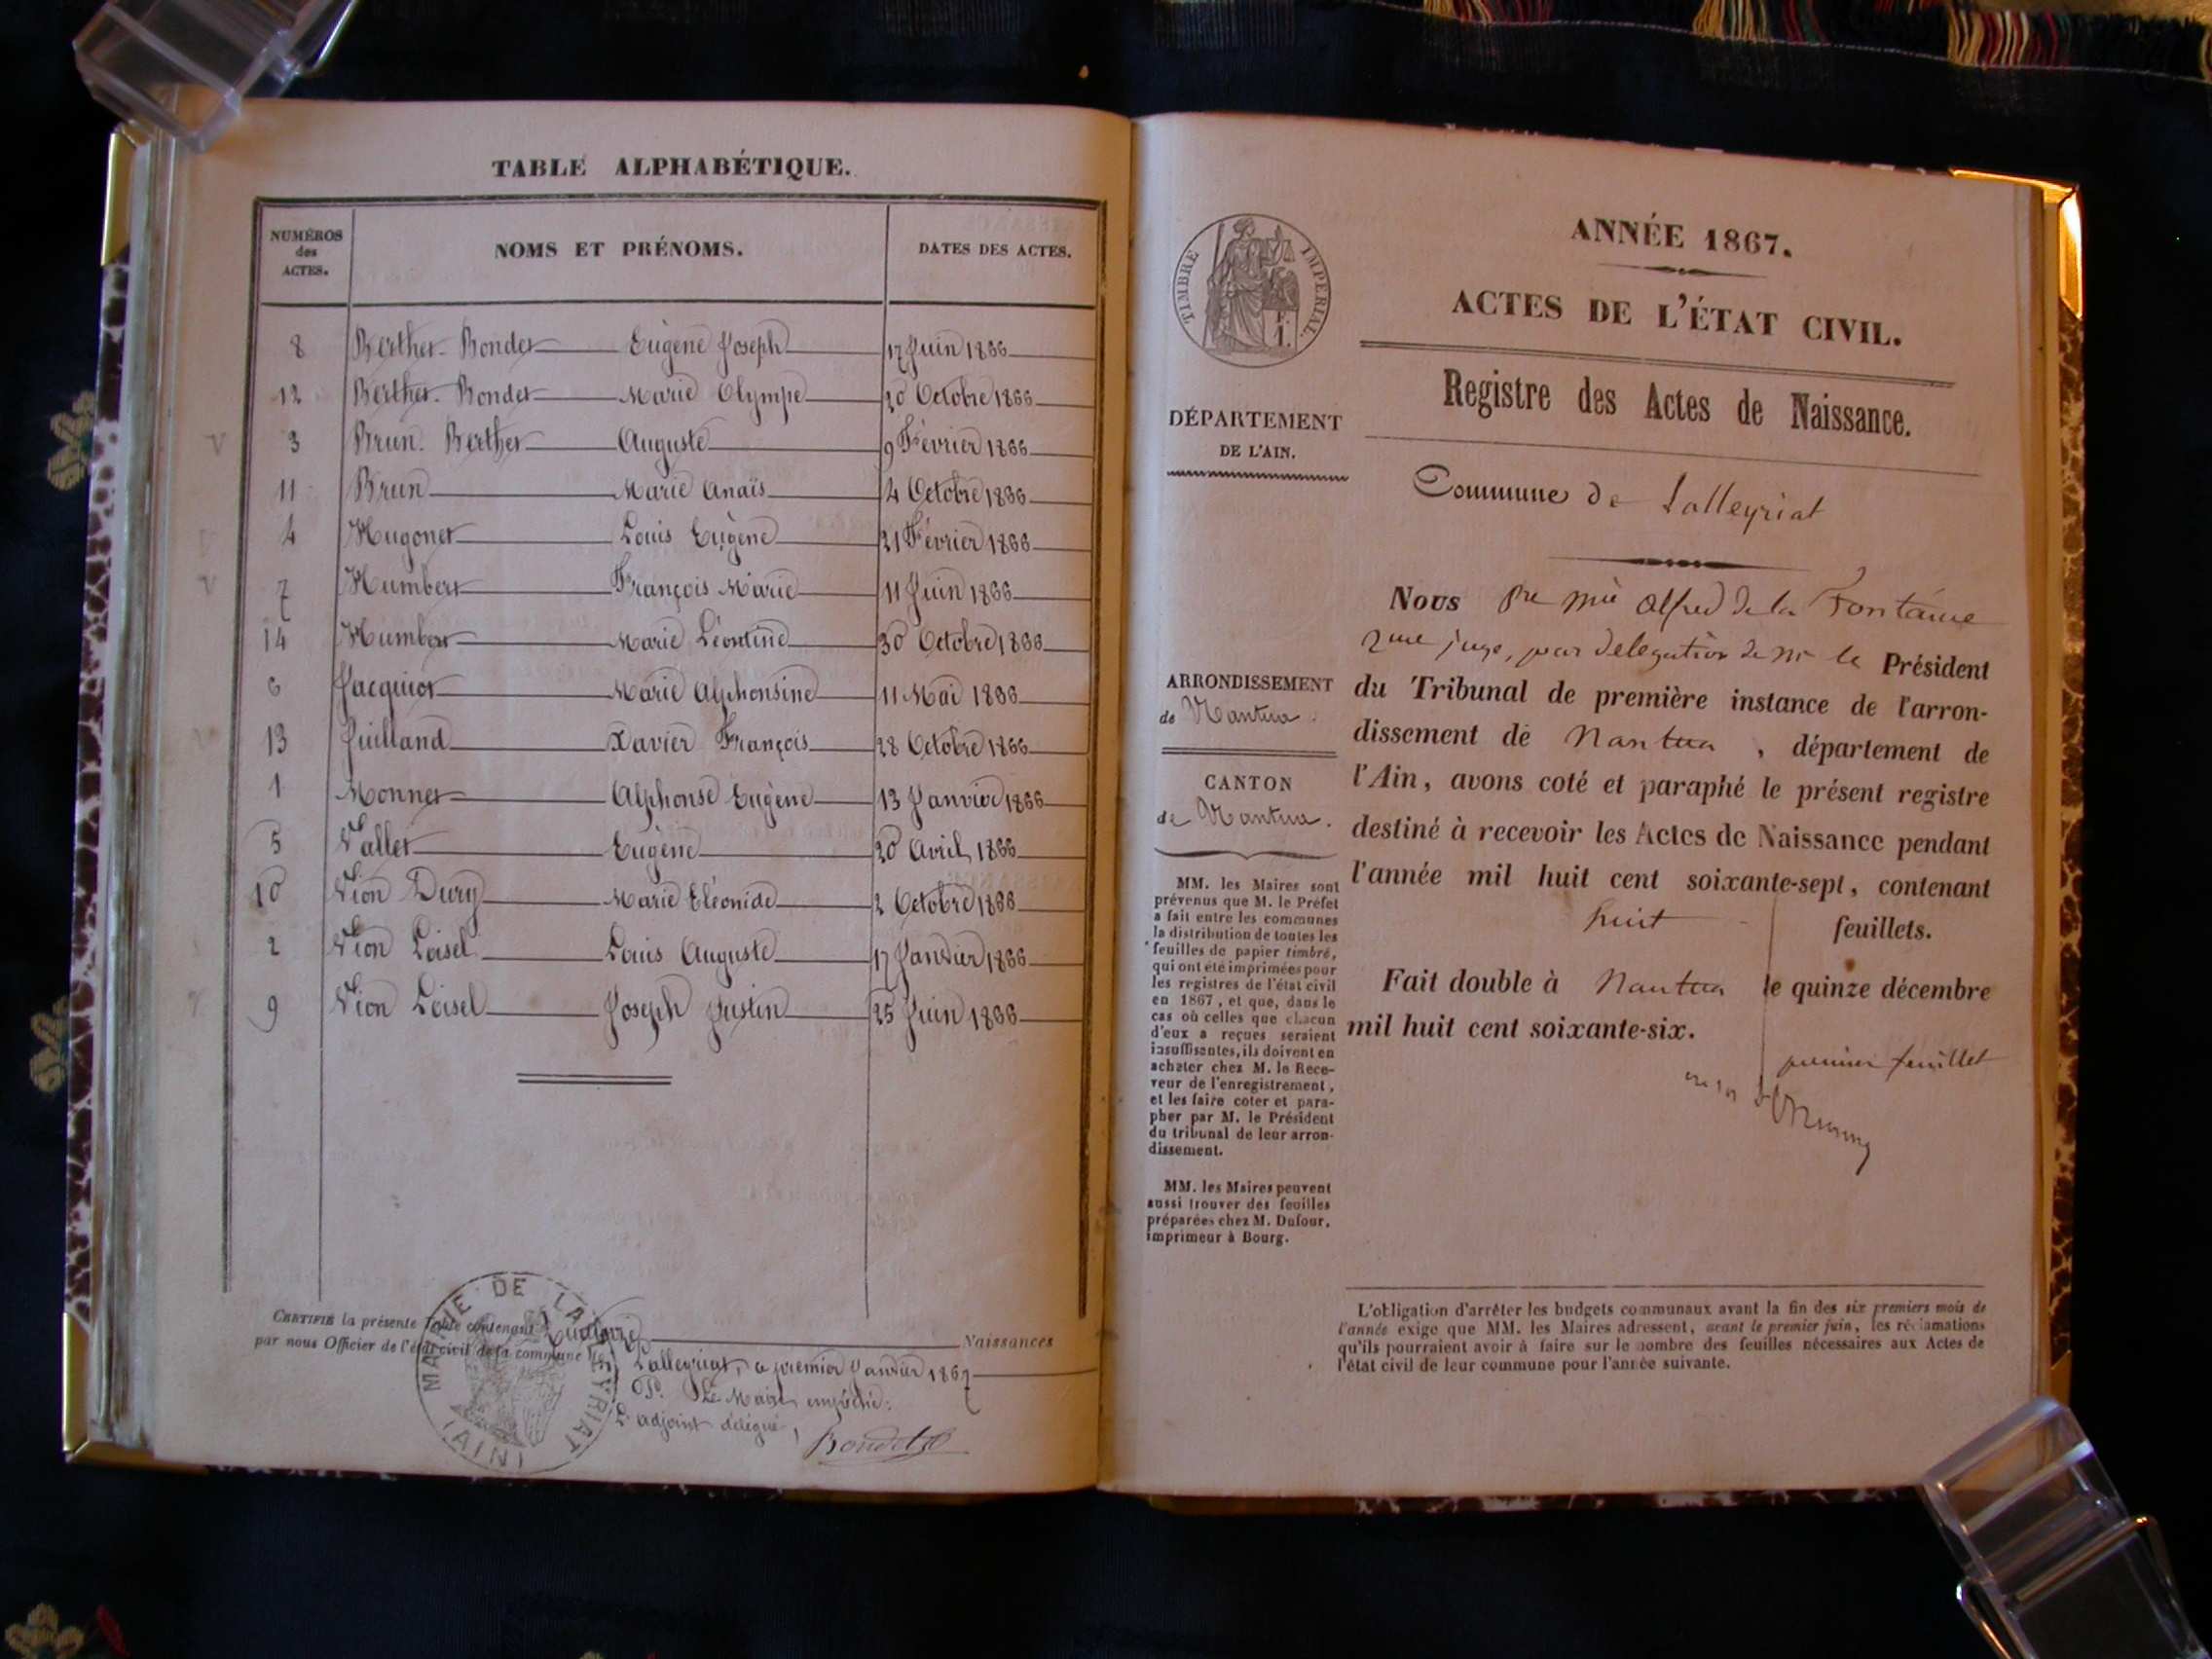 TABLE ALPHABÉTIQUE.
NUMÉROS des ACTES. NOMS ET PRÉNOMS. DATES DES ACTES.
8 Berthet-Bondet Eugène Joseph 17 Juin 1866
12 Berthet-Bondet Marie Olympe 20 Octobre 1866
3 Brun-Berthet Auguste 9 Février 1866
11 Brun Marie Anaïs 4 Octobre 1866
4 Hugonet Louis Eugène 21 Février 1866
7 Humbert François Marie 11 Juin 1866
14 Humbert Marie Léontine 30 Octobre 1866
6 Jacquiot Marie Alphonsine 11 Mai 1866
13 Juilland Xavier François 28 Octobre 1866
1 Monnet Alphonse Eugène 13 Janvier 1866
5 Vallet Eugène 20 Avril 1866
10 Vion Dury Marie Eléonide 2 Octobre 1866
2 Vion Loisel Louis Auguste 17 Janvier 1866
9 Vion Loisel Joseph Justin 25 Juin 1866
CERTIFIÉ la présente Table contenant Quatorze Naissances
par nous Officier de l'état civil de la commune de
Lalleyriat, ce premier Janvier 1867
Po. Le Maire empêché:
L'adjoint délégué,
Bondet
MAIRIE DE LALLEYRIAT (AIN)
TIMBRE IMPERIAL
F. 1.
ANNÉE 1867.
ACTES DE L'ÉTAT CIVIL.
Registre des Actes de Naissance.
Commune de Lalleyriat
DÉPARTEMENT
DE L'AIN.
ARRONDISSEMENT
de Nantua.
CANTON
de Nantua.
MM. les Maires sont
prévenus que M. le Préfet
a fait entre les communes
la distribution de toutes les
feuilles de papier timbré,
qui ont été imprimées pour
les registres de l'état civil
en 1867, et que, dans le
cas où celles que chacun
d'eux a reçues seraient
insuffisantes, ils doivent en
acheter chez M. le Rece-
veur de l'enregistrement,
et les faire coter et para-
pher par M. le Président
du tribunal de leur arron-
dissement.
MM. les Maires peuvent
aussi trouver des feuilles
préparées chez M. Dufour,
imprimeur à Bourg.
Nous Pre Mie Alfred de la Fontaine
juge, par délégation de Mr le Président
du Tribunal de première instance de l'arron-
dissement de Nantua, département de
l'Ain, avons coté et paraphé le présent registre
destiné à recevoir les Actes de Naissance pendant
l'année mil huit cent soixante-sept, contenant
huit feuillets.
Fait double à Nantua le quinze décembre
mil huit cent soixante-six.
premier feuillet
L'obligation d'arrêter les budgets communaux avant la fin des six premiers mois de
l'année exige que MM. les Maires adressent, avant le premier juin, les réclamations
qu'ils pourraient avoir à faire sur le nombre des feuilles nécessaires aux Actes de
l'état civil de leur commune pour l'année suivante.